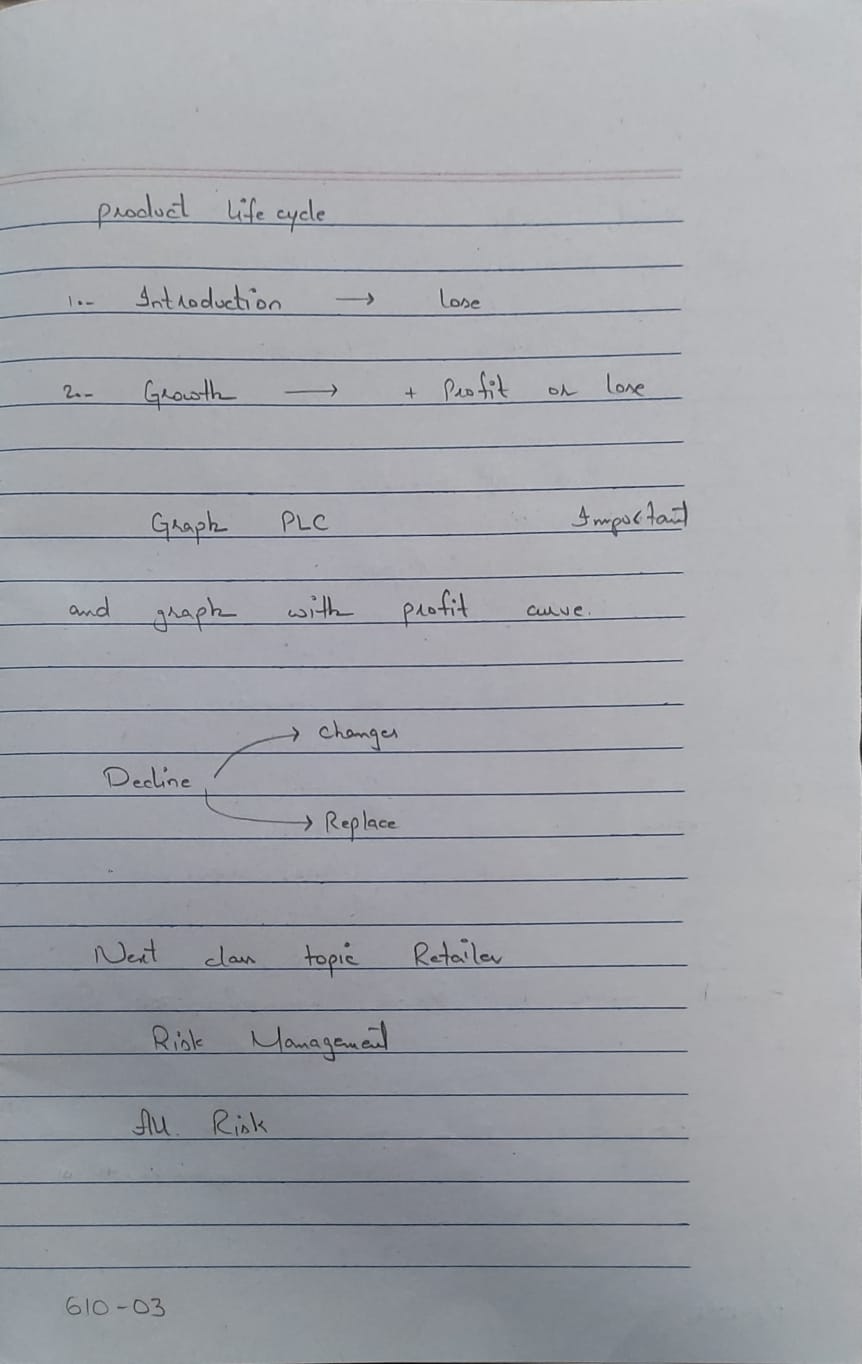 product life cycle
1.- Introduction → lose
2.- Growth → + Profit or lose
Graph PLC Important
and graph with profit curve.
→ Changes
Decline
→ Replace
Next class topic Retailer
Risk Management
All Risk
610-03